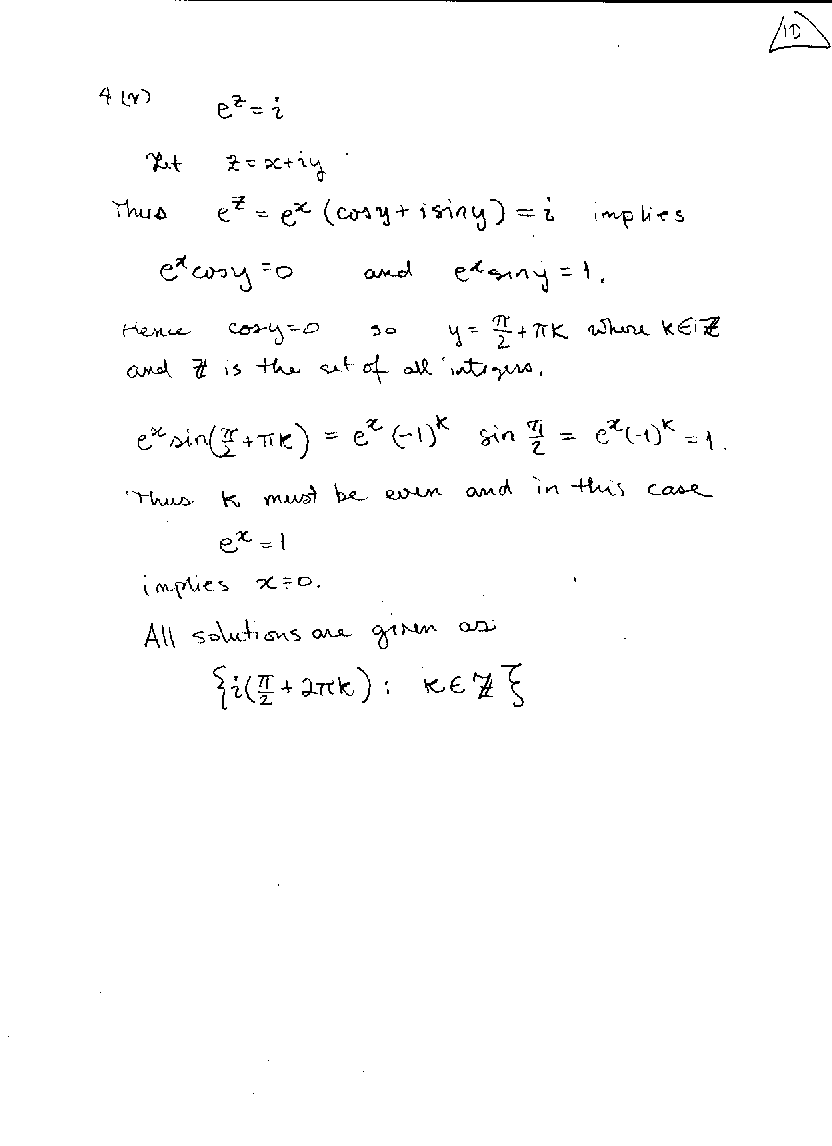 10
4(v) e^z = i
Let z = x+iy
Thus e^z = e^x (cosy + isiny) = i implies
e^x cosy = 0 and e^x siny = 1.
Hence cosy=0 so y = π/2 + πk where k∈ℤ
and ℤ is the set of all integers.
e^x sin(π/2 + πk) = e^x (-1)^k sin π/2 = e^x (-1)^k = 1.
Thus k must be even and in this case
e^x = 1
implies x=0.
All solutions are given as
{i(π/2 + 2πk) : k∈ℤ}